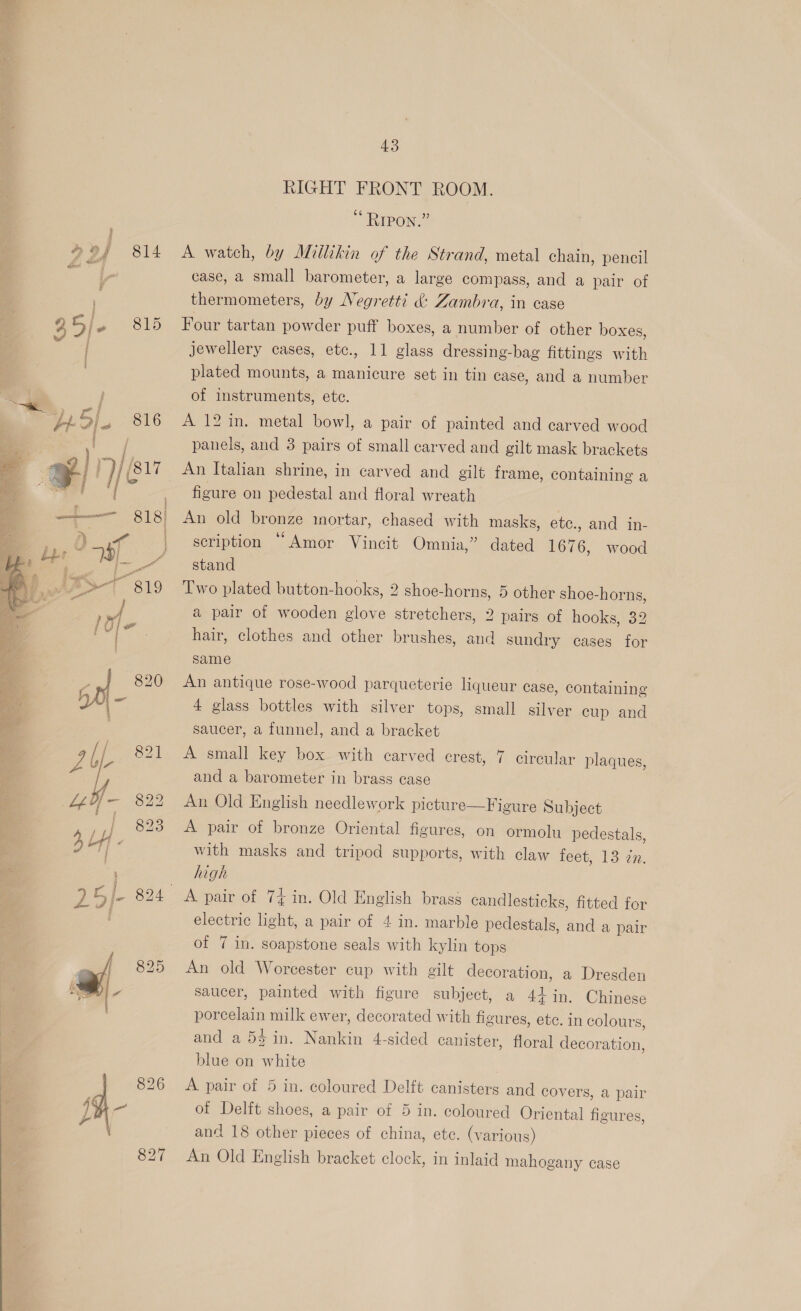 43
RIGHT FRONT ROOM.
“RIPON.”
22/ 814 A watch, by Millikin of the Strand, metal chain, pencil
case, a small barometer, a large compass, and a pair of
thermometers, by Negretti & Zambra, in case
35/- 815 Four tartan powder puff boxes, a number of other boxes,
jewellery cases, etc., 11 glass dressing-bag fittings with
plated mounts, a manicure set in tin case, and a number
of instruments, etc.
816 A 12 in. metal bowl, a pair of painted and carved wood
panels, and 3 pairs of small carved and gilt mask brackets
817 An Italian shrine, in carved and gilt frame, containing a
figure on pedestal and floral wreath
818 An old bronze mortar, chased with masks, etc., and in-
scription “Amor Vincit Omnia,” dated 1676, wood
stand
819 Two plated button-hooks, 2 shoe-horns, 5 other shoe-horns,
a pair of wooden glove stretchers, 2 pairs of hooks, 32
hair, clothes and other brushes, and sundry cases for
same
820 An antique rose-wood parqueterie liqueur case, containing
4 glass bottles with silver tops, small silver cup and
saucer, a funnel, and a bracket
821 A small key box with carved crest, 7 circular plaques,
and a barometer in brass case
822 An Old English needlework picture—Figure Subject
823 A pair of bronze Oriental figures, on ormolu pedestals,
with masks and tripod supports, with claw feet, 13 in.
high
25/- 824 A pair of 7¼ in. Old English brass candlesticks, fitted for
electric light, a pair of 4 in. marble pedestals, and a pair
of 7 in. soapstone seals with kylin tops
825 An old Worcester cup with gilt decoration, a Dresden
saucer, painted with figure subject, a 4¼ in. Chinese
porcelain milk ewer, decorated with figures, etc. in colours,
and a 5¾ in. Nankin 4-sided canister, floral decoration,
blue on white
826 A pair of 5 in. coloured Delft canisters and covers, a pair
of Delft shoes, a pair of 5 in. coloured Oriental figures,
and 18 other pieces of china, etc. (various)
827 An Old English bracket clock, in inlaid mahogany case